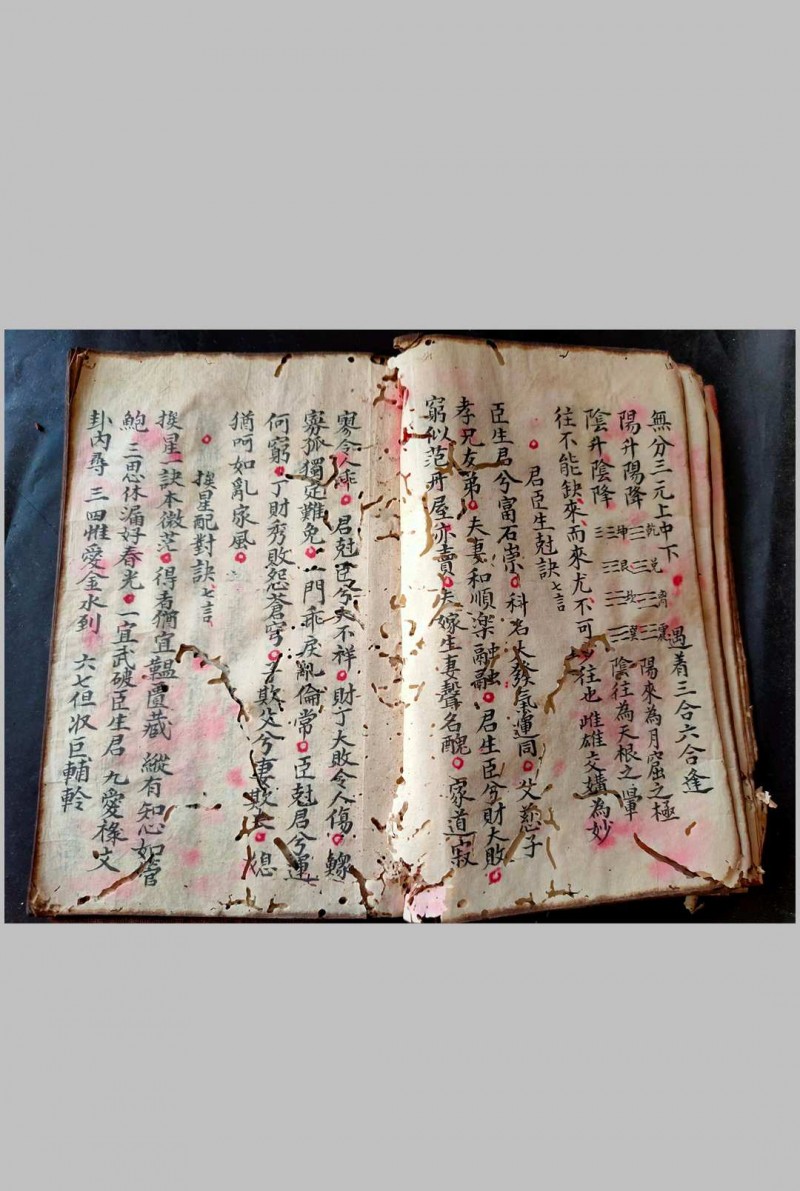 無分三元上中下 遇着三合六合逢
陽升陽降 乾 坤 兌 艮 離 坎 震 巽 陽來為月窟之極
陰升陰降 陰往為天根之
往不能缺來而來尤不可少往也 雌雄交媾為妙
君臣生尅訣 七言
臣生君兮富石崇 科名大發氣運同 父慈子
孝兄友弟 夫妻和順樂融融 君生臣兮財大敗
窮似范丹屋亦賣 夫嫁生妻聲名醜 家道寂
寥令人唾 君尅臣兮大不祥 財丁大敗令人傷 鰥
寡孤獨定難免 一門乖戾亂倫常 臣尅君兮運
何窮 丁財秀敗怨蒼穹 子欺父兮妻欺夫 媳
猶呵如亂家風
挨星配對訣 七言
挨星一訣本微茫 得者猶宜韞匵藏 縱有知心如管
鮑 三思休漏好春光 一宜武破臣生君 九愛祿文
卦內尋 三四惟愛金水到 六七但収巨輔